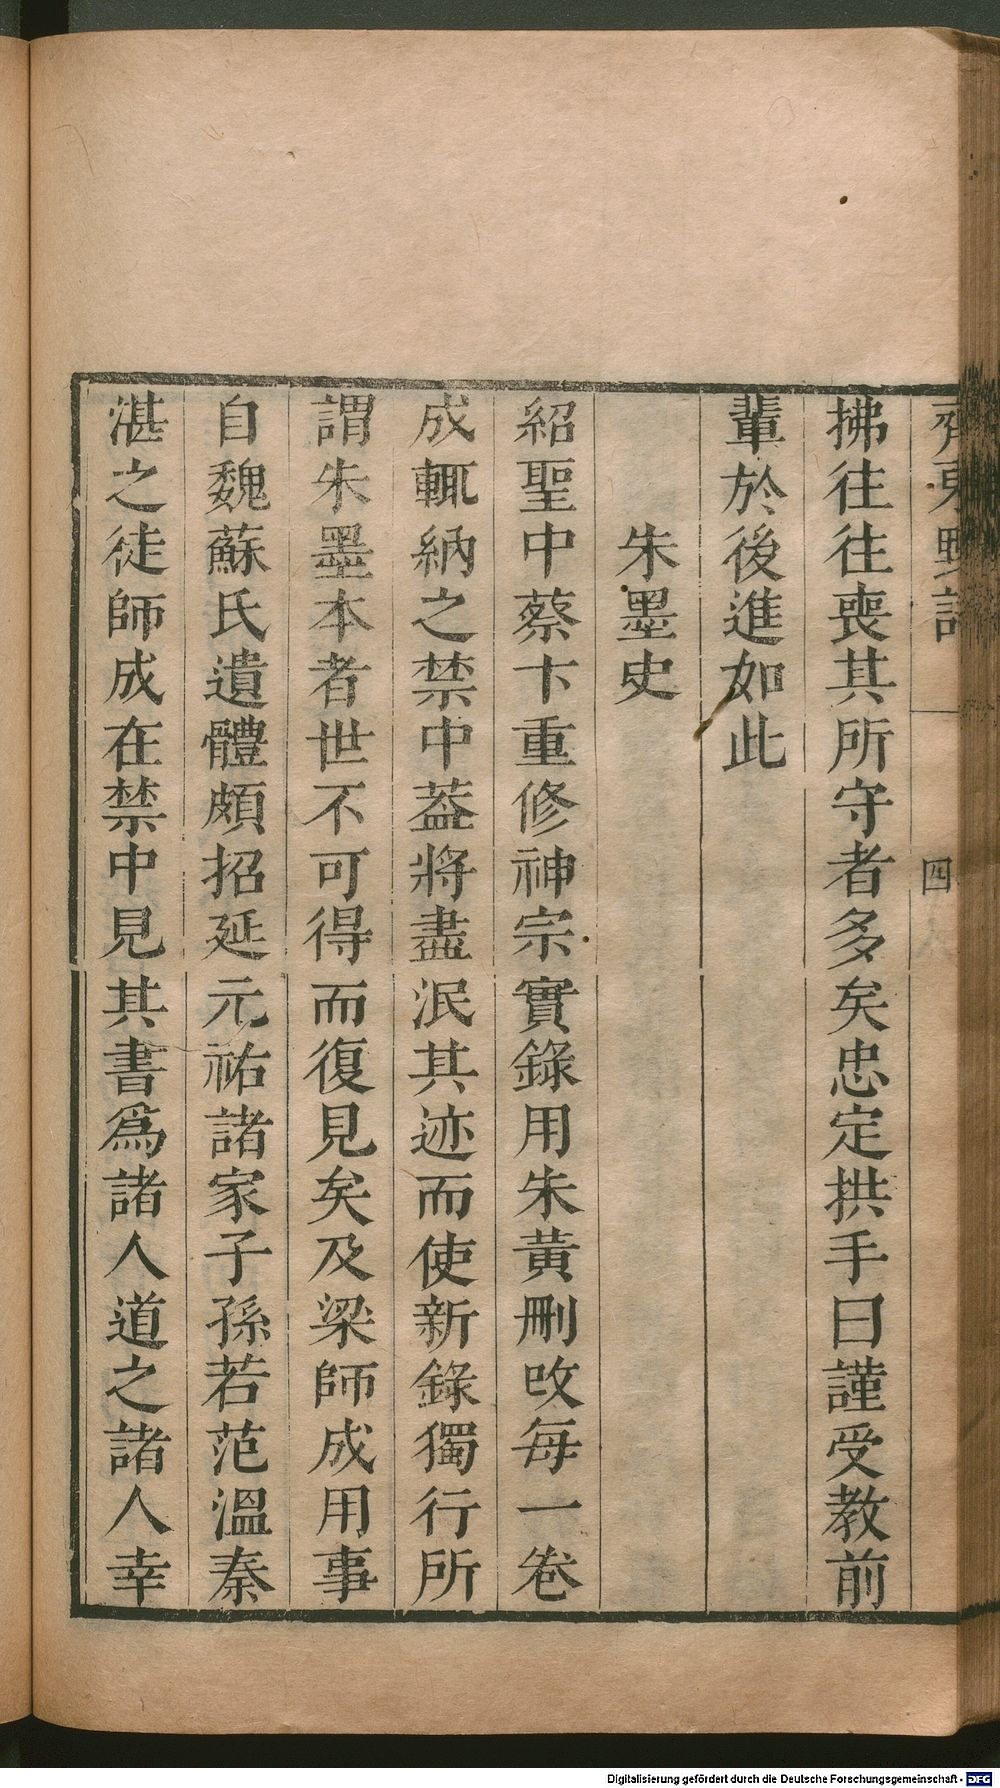 齊東野語
四
拂往往喪其所守者多矣忠定拱手曰謹受教前
輩於後進如此
朱墨史
紹聖中蔡卞重修神宗實錄用朱黃刪改每一卷
成輒納之禁中蓋將盡泯其迹而使新錄獨行所
謂朱墨本者世不可得而復見矣及梁師成用事
自魏蘇氏遺體頗招延元祐諸家子孫若范溫秦
湛之徒師成在禁中見其書爲諸人道之諸人幸
Digitalisierung gefördert durch die Deutsche Forschungsgemeinschaft - DFG